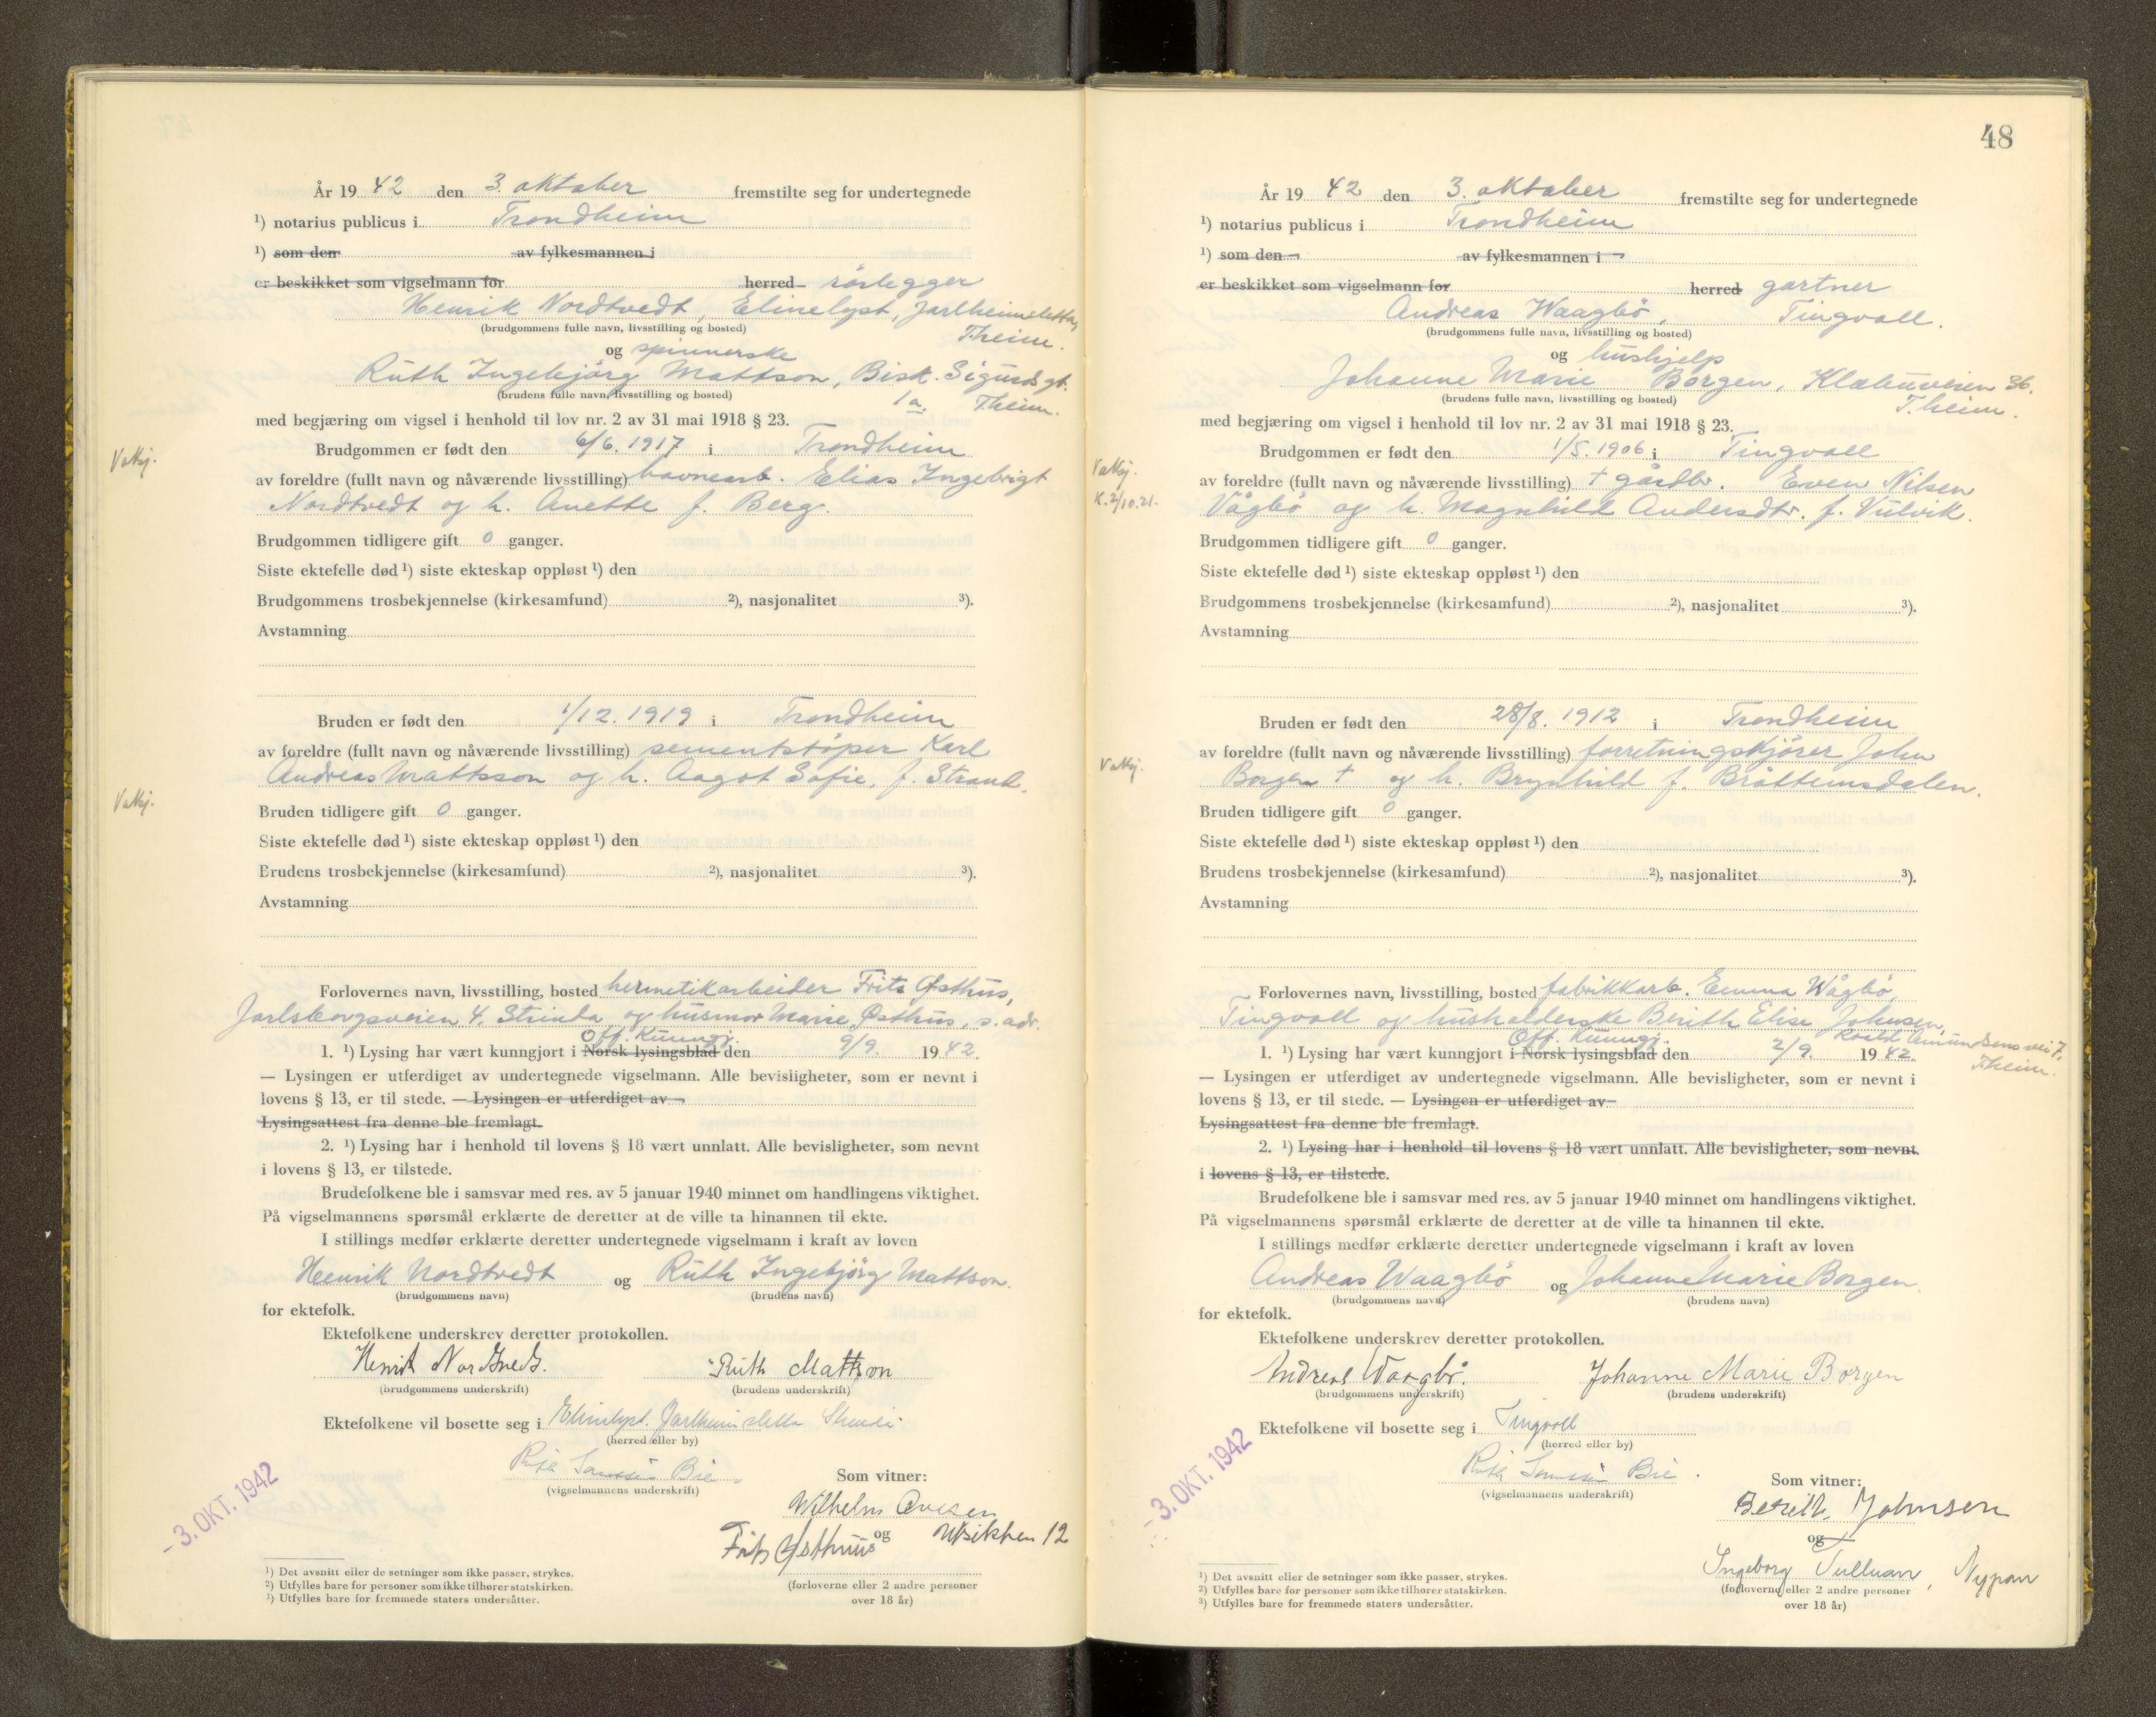 År 19 42 den 3. oktober fremstilte seg for undertegnede
¹) notarius publicus i Trondheim
¹) som den av fylkesmannen i
er beskikket som vigselmann for herred rörlegger
Henrik Nordtvedt, Elinelyst, Jarlheimsletta,
T.heim.
(brudgommens fulle navn, livsstilling og bosted)
og spinnerske
Ruth Ingebjörg Mattson, Bisk. Sigurds gt.
1a. T.heim.
(brudens fulle navn, livsstilling og bosted)
med begjæring om vigsel i henhold til lov nr. 2 av 31 mai 1918 § 23.
Brudgommen er født den 6/6. 1917 i Trondheim
av foreldre (fullt navn og nåværende livsstilling) havnearb. Elias Ingebrigt
Nordtvedt og h. Anette f. Berg.
Brudgommen tidligere gift 0 ganger.
Siste ektefelle død ¹) siste ekteskap oppløst ¹) den
Brudgommens trosbekjennelse (kirkesamfund) ²), nasjonalitet ³).
Avstamning
Bruden er født den 1/12. 1919 i Trondheim
av foreldre (fullt navn og nåværende livsstilling) sementstöper Karl
Andreas Mattsson og h. Aagot Sofie, f. Strand.
Bruden tidligere gift 0 ganger.
Siste ektefelle død ¹) siste ekteskap oppløst ¹) den
Brudens trosbekjennelse (kirkesamfund) ²), nasjonalitet ³).
Avstamning
Forlovernes navn, livsstilling, bosted hermetikarbeider Frits Østhus,
Jarlsborgsveien 4, Strinda og husmor Marie Østhus, s. adr.
Off. Kunngj.
1. ¹) Lysing har vært kunngjort i Norsk lysingsblad den 9/9. 1942.
— Lysingen er utferdiget av undertegnede vigselmann. Alle bevisligheter, som er nevnt i
lovens § 13, er til stede. — Lysingen er utferdiget av —
Lysingsattest fra denne ble fremlagt.
2. ¹) Lysing har i henhold til lovens § 18 vært unnlatt. Alle bevisligheter, som nevnt
i lovens § 13, er tilstede.
Brudefolkene ble i samsvar med res. av 5 januar 1940 minnet om handlingens viktighet.
På vigselmannens spørsmål erklærte de deretter at de ville ta hinannen til ekte.
I stillings medfør erklærte deretter undertegnede vigselmann i kraft av loven
Henrik Nordtvedt og Ruth Ingebjörg Mattson.
(brudgommens navn) (brudens navn)
for ektefolk.
Ektefolkene underskrev deretter protokollen.
Henrik Nordtvedt. Ruth Mattson
(brudgommens underskrift) (brudens underskrift)
Ektefolkene vil bosette seg i Elinelyst. Jarlheimsletta Strinda
(herred eller by)
Bie
(vigselmannens underskrift)
Som vitner:
-3. OKT. 1942
Wilhelm
og 12
Frits Østhus
(forloverne eller 2 andre personer
over 18 år)
¹) Det avsnitt eller de setninger som ikke passer, strykes.
²) Utfylles bare for personer som ikke tilhører statskirken.
³) Utfylles bare for fremmede staters undersåtter.
48
År 19 42 den 3. oktober fremstilte seg for undertegnede
¹) notarius publicus i Trondheim
¹) som den — av fylkesmannen i —
er beskikket som vigselmann for herred gartner
Andreas Waagbö, Tingvoll.
(brudgommens fulle navn, livsstilling og bosted)
og hushjelp
Johanne Marie Borgen, Klæbuveien 36.
T.heim.
(brudens fulle navn, livsstilling og bosted)
med begjæring om vigsel i henhold til lov nr. 2 av 31 mai 1918 § 23.
Brudgommen er født den 1/5. 1906 i Tingvoll
av foreldre (fullt navn og nåværende livsstilling) † gårdbr. Even Nilsen
Vågbö og h. Magnhild Andersdtr. f. Vulvik.
Brudgommen tidligere gift 0 ganger.
Siste ektefelle død ¹) siste ekteskap oppløst ¹) den
Brudgommens trosbekjennelse (kirkesamfund) ²), nasjonalitet ³).
Avstamning
Bruden er født den 28/8. 1912 i Trondheim
av foreldre (fullt navn og nåværende livsstilling) forretningskjörer John
Borgen † og h. Brynhild f. Bråttemsdalen.
Bruden tidligere gift 0 ganger.
Siste ektefelle død ¹) siste ekteskap oppløst ¹) den
Brudens trosbekjennelse (kirkesamfund) ²), nasjonalitet ³).
Avstamning
Forlovernes navn, livsstilling, bosted fabrikkarb. Emma Wågbö,
Tingvoll og husholderske Berith Elise Johnsen,
Roald Amundsens vei 7, T.heim.
Off. Kunngj.
1. ¹) Lysing har vært kunngjort i Norsk lysingsblad den 2/9. 1942.
— Lysingen er utferdiget av undertegnede vigselmann. Alle bevisligheter, som er nevnt i
lovens § 13, er til stede. — Lysingen er utferdiget av—
Lysingsattest fra denne ble fremlagt.
2. ¹) Lysing har i henhold til lovens § 18 vært unnlatt. Alle bevisligheter, som nevnt
i lovens § 13, er tilstede.
Brudefolkene ble i samsvar med res. av 5 januar 1940 minnet om handlingens viktighet.
På vigselmannens spørsmål erklærte de deretter at de ville ta hinannen til ekte.
I stillings medfør erklærte deretter undertegnede vigselmann i kraft av loven
Andreas Waagbö og Johanne Marie Borgen
(brudgommens navn) (brudens navn)
for ektefolk.
Ektefolkene underskrev deretter protokollen.
Andreas Waagbö. Johanne Marie Borgen
(brudgommens underskrift) (brudens underskrift)
Ektefolkene vil bosette seg i Tingvoll
(herred eller by)
Bie.
(vigselmannens underskrift)
Som vitner:
-3. OKT. 1942
Berith Johnsen
og
Ingeborg Tulluan, Nypan
(forloverne eller 2 andre personer
over 18 år)
¹) Det avsnitt eller de setninger som ikke passer, strykes.
²) Utfylles bare for personer som ikke tilhører statskirken.
³) Utfylles bare for fremmede staters undersåtter.